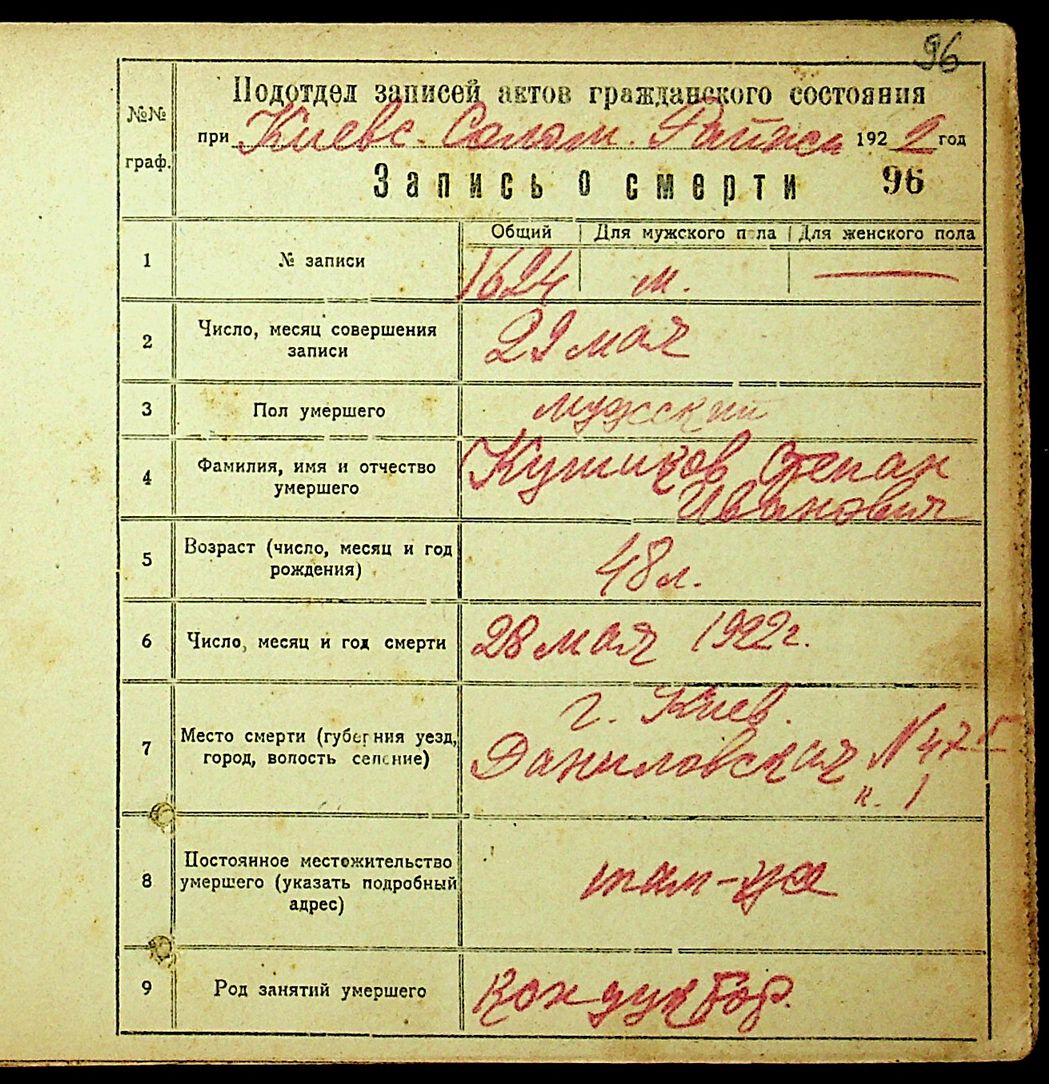 96
№№ граф.
Подотдел записей актов гражданского состояния
при Киевс. Солом. Райиси 1922 год
Запись о смерти 96
Общий Для мужского пола Для женского пола
1 № записи 1624 м. —
2 Число, месяц совершения записи 29 мая
3 Пол умершего мужский
4 Фамилия, имя и отчество умершего
Степан
Иванович
5 Возраст (число, месяц и год рождения) 48 л.
6 Число, месяц и год смерти 28 мая 1922 г.
7 Место смерти (губерния уезд, город, волость селение)
г. Киев.
Даниловская N 47
к. 1
8 Постоянное местожительство умершего (указать подробный адрес) там-же
9 Род занятий умершего кондуктор.